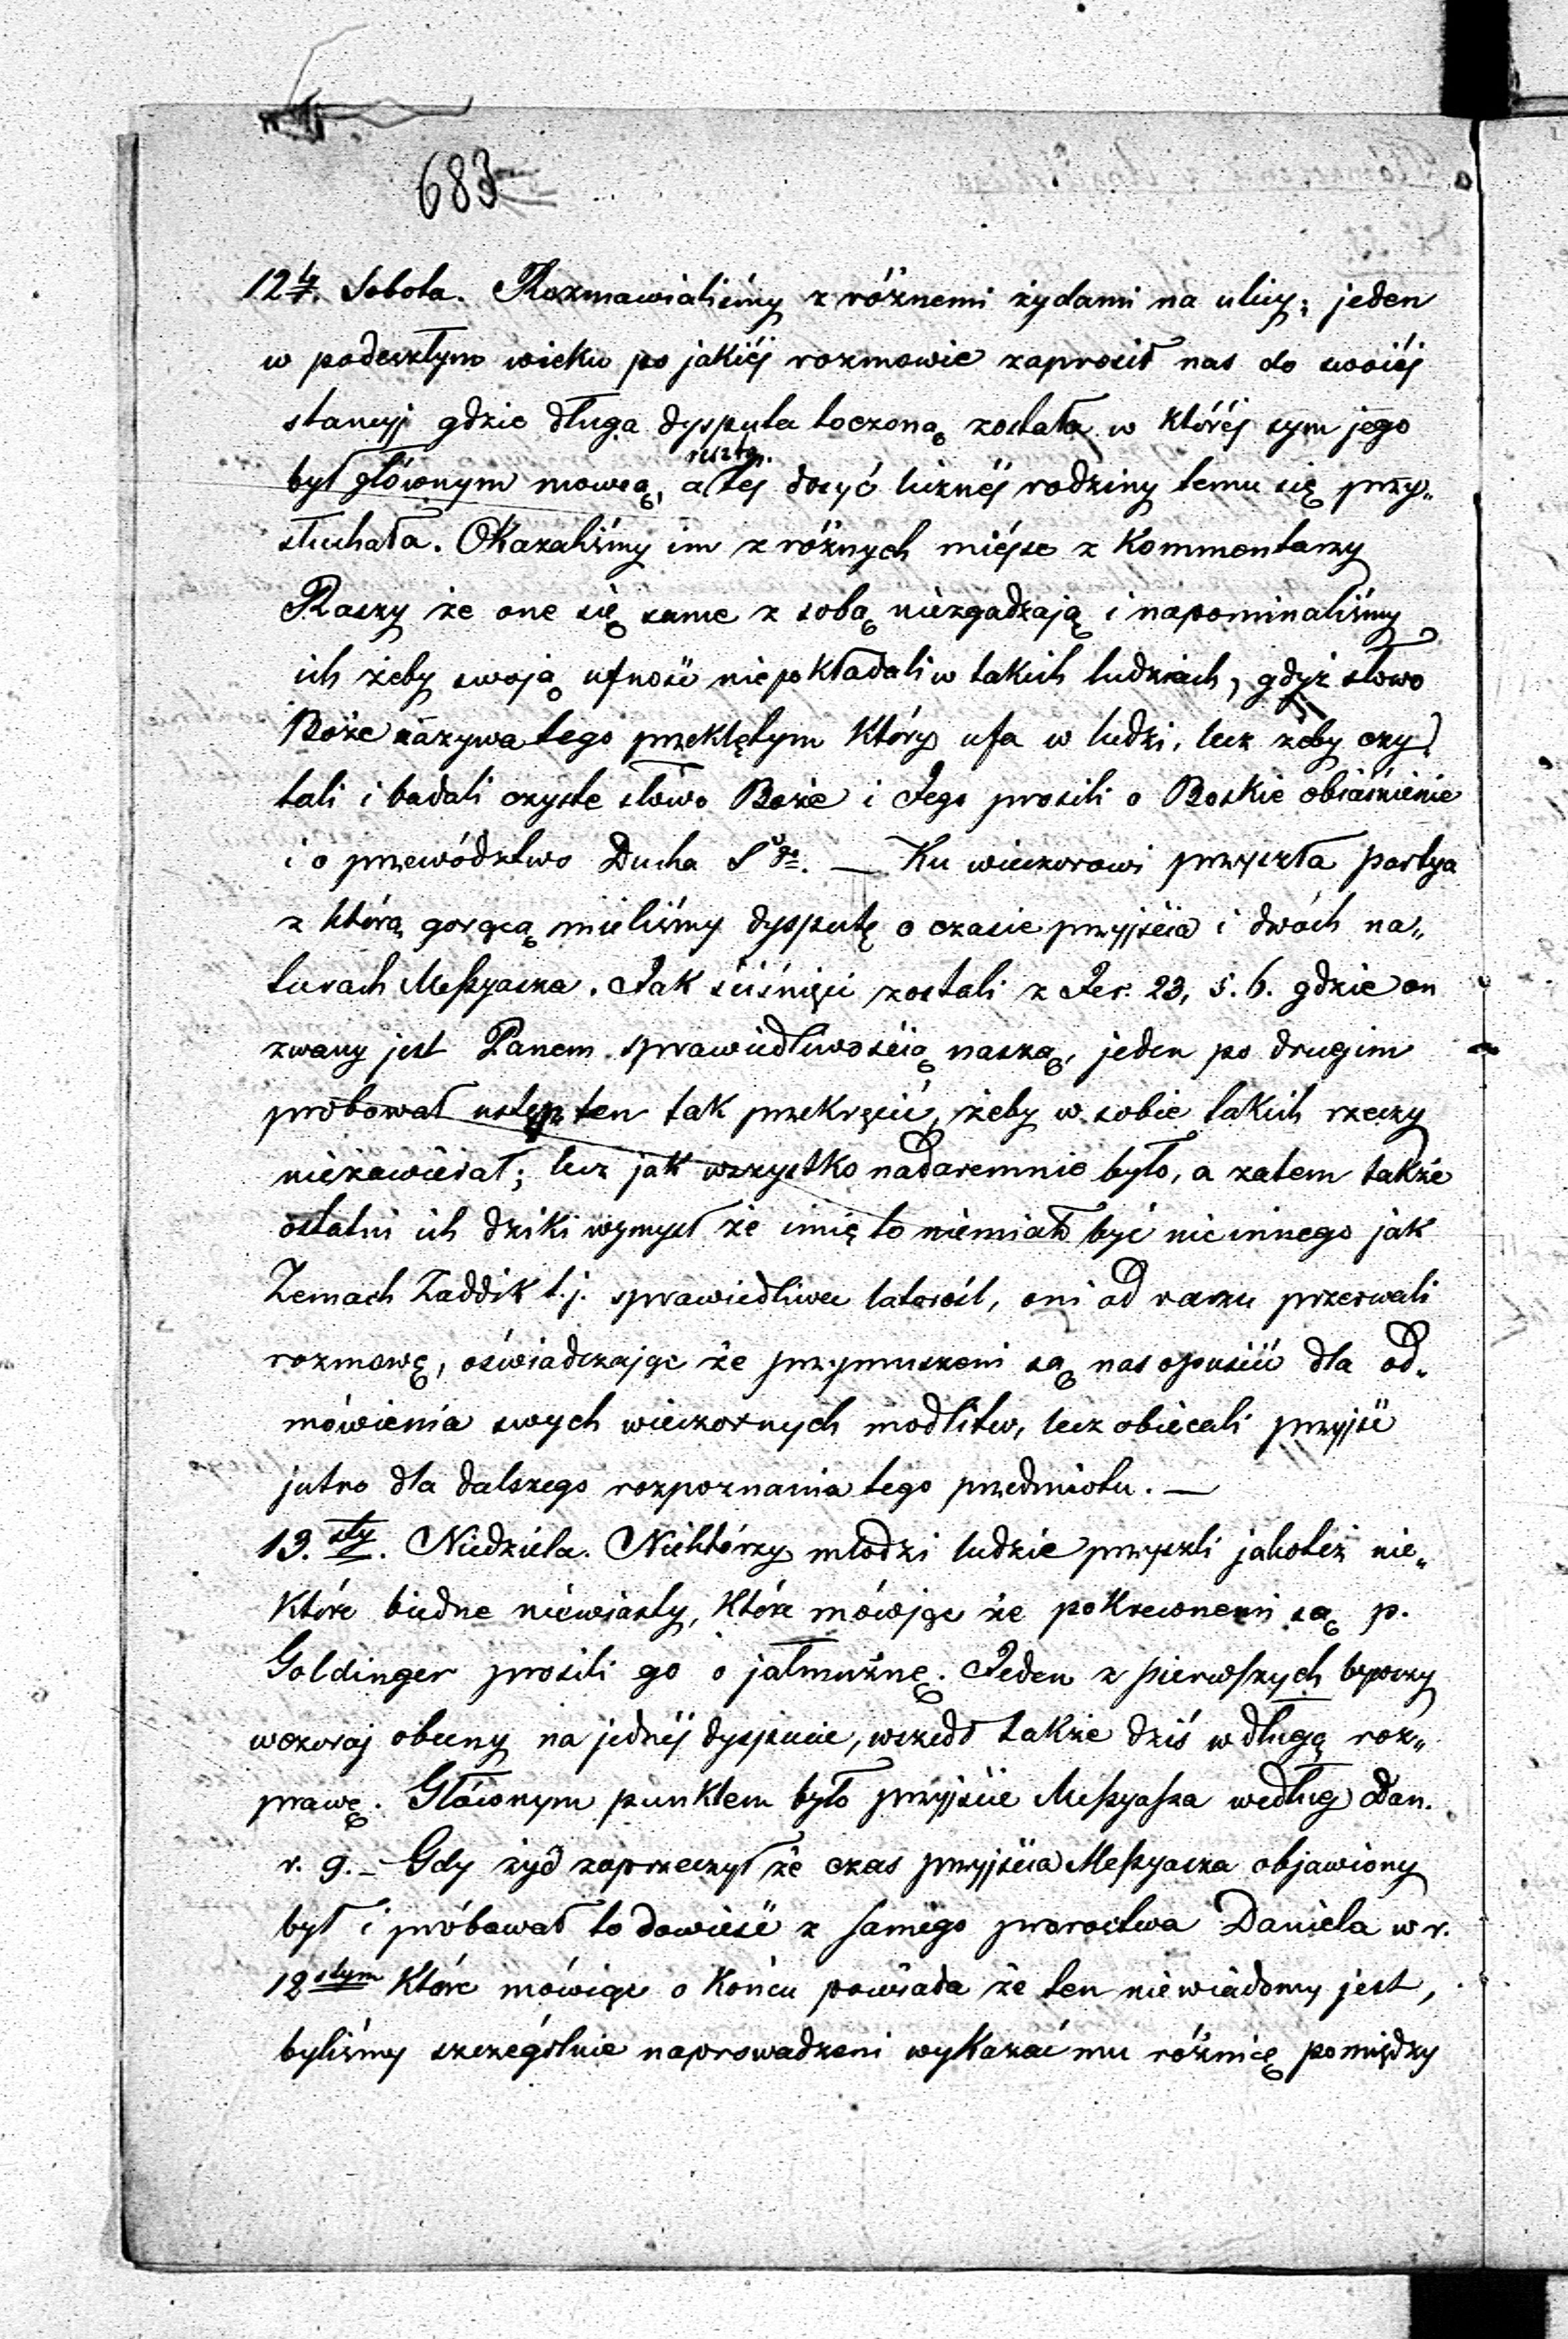 683
12ty. Sobota. Rozmawialiśmy z różnemi żydami na ulicy; jeden
w podeszłym wieku po jakiéj rozmowie zaprosił nas do swoiéj
stancyi gdzie długa dysputa toczoną została w któréj syn jego
był głównym mowcą, a resztą téj dosyć licznéj rodziny temu się przy„
słuchała. Okazaliśmy im z różnych miéjsc z Kommentarzy
Raszy że one się same z sobą niezgadzają i napominaliśmy
ich żeby swoją ufność niepokładali w takich ludziach, gdyż słowo
Boże nazywa tego przeklętym który ufa w ludzi, lecz żeby czy„
tali i badali czyste słowo Boże i Jego prosili o Boskie obiaśnienie
i o przewództwo Ducha Sgo. — Ku wieczorowi przyszła partya
z którą gorącą mieliśmy dysputę o czasie przyjścia i dwóch na„
turach Messyasza. Jak ściśnięci zostali z Jer. 23, 5. 6. gdzie on
zwany jest Panem sprawiedliwością naszą, jeden po drugim
probował ustęp ten tak przekręcić, żeby w sobie takich rzeczy
niezawierał; lecz jak wszystko nadaremnie było, a zatem także
ostatni ich dziki wymysł że imię to niemiało być nic innego jak
Zemach Zaddik t.j. sprawiedliwa latorośl, oni od razu przerwali
rozmowę, oświadczając że przymuszeni są nas opuścić dla od„
mówienia swych wieczornych modlitw, lecz obiecali przyjść
jutro dla dalszego rozpoznania tego przedmiotu. —
13.sty. Niedziela. Niektórzy młodzi ludzie przyszli jakoteż nie„
które biedne niewiasty, które mówiąc że pokrewnemi są p.
Goldinger prosili go o jałmużnę. Jeden z pierwszych bywszy
wczoraj obecny na jednéj dyspucie, wszedł także dziś w długą roz„
prawę. Głównym punktem było przyjście Messyasza według Dan.
r. 9. — Gdy żyd zaprzeczył że czas przyjścia Messyasza objawiony
był i próbował to dowieść z samego proroctwa Daniela w r.
12stym które mówiąc o końcu powiada że ten niewiadomy jest,
byliśmy szczególnie naprowadzeni wykazać mu różnicę pomiędzy